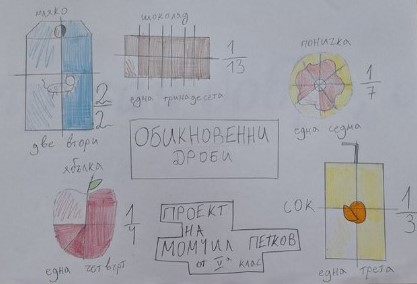 мляко
2
2
две втори
шоколад
1
13
една тринадесета
поничка
1
7
една седма
ОБИКНОВЕННИ
ДРОБИ
ябълка
1
4
една четвърт
ПРОЕКТ
НА
МОМЧИЛ ПЕТКОВ
от Vа клас
СОК
1
3
една трета